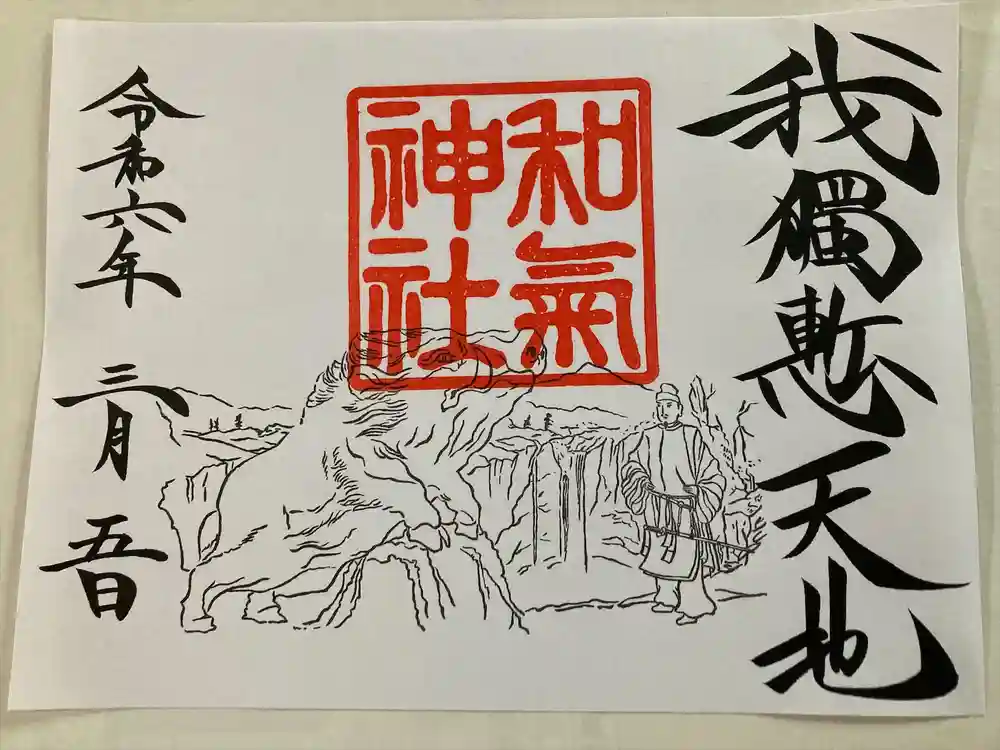 我獨慙天地
和氣
神社
令和六年 三月 吾日